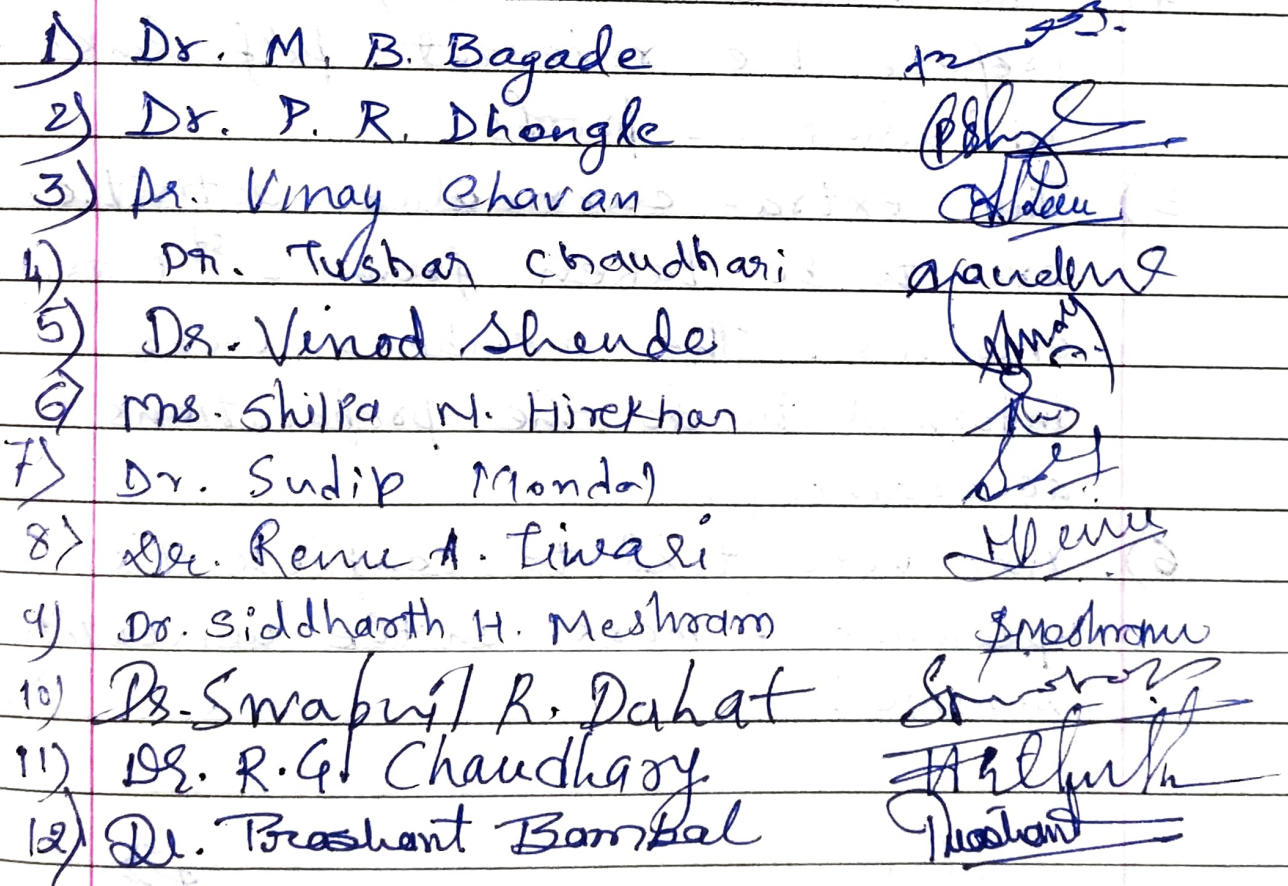 1) Dr. M. B. Bagade
2) Dr. P. R. Dhongle
3) Dr. Vinay Chavan
4) Dr. Tushar Chaudhari
5) Dr. Vinod Shende
6) Mrs. Shilpa N. Hirekhan
7) Dr. Sudip Mondal
8) Dr. Renu A. Tiwari
9) Dr. Siddharth H. Meshram Smeshram
10) Dr. Swapnil R. Dahat
11) Dr. R. G. Chaudhary
12) Dr. Prashant Bambal Prashant